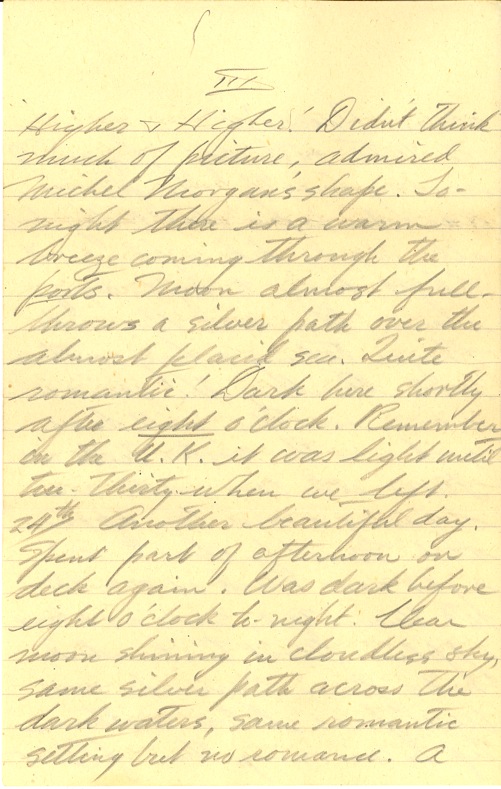 III
Higher & Higher! Didn't think
much of picture, admired
Michel Morgan's shape. To-
night there is a warm
breeze coming through the
ports. Moon almost full-
throws a silver path over the
almost placid sea. Quite
romantic! Dark here shortly
after eight o'clock. Remember
in the U.K. it was light until
ten-thirty when we left.
24th Another beautiful day.
Spent part of afternoon on
deck again. Was dark before
eight o'clock to-night. Clear
moon shining in cloudless sky,
same silver path across the
dark waters, same romantic
setting but no romance. A